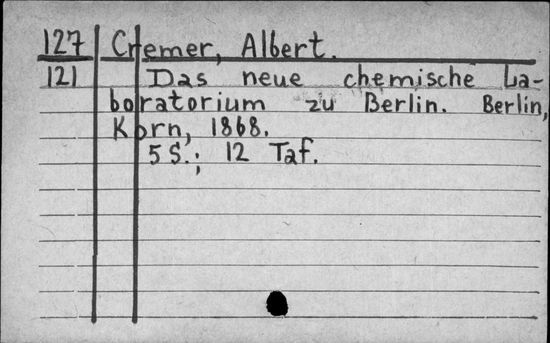 127 Cremer, Albert.
121 Das neue chemische La-
boratorium zu Berlin. Berlin,
Korn, 1868.
5 S.; 12 Taf.